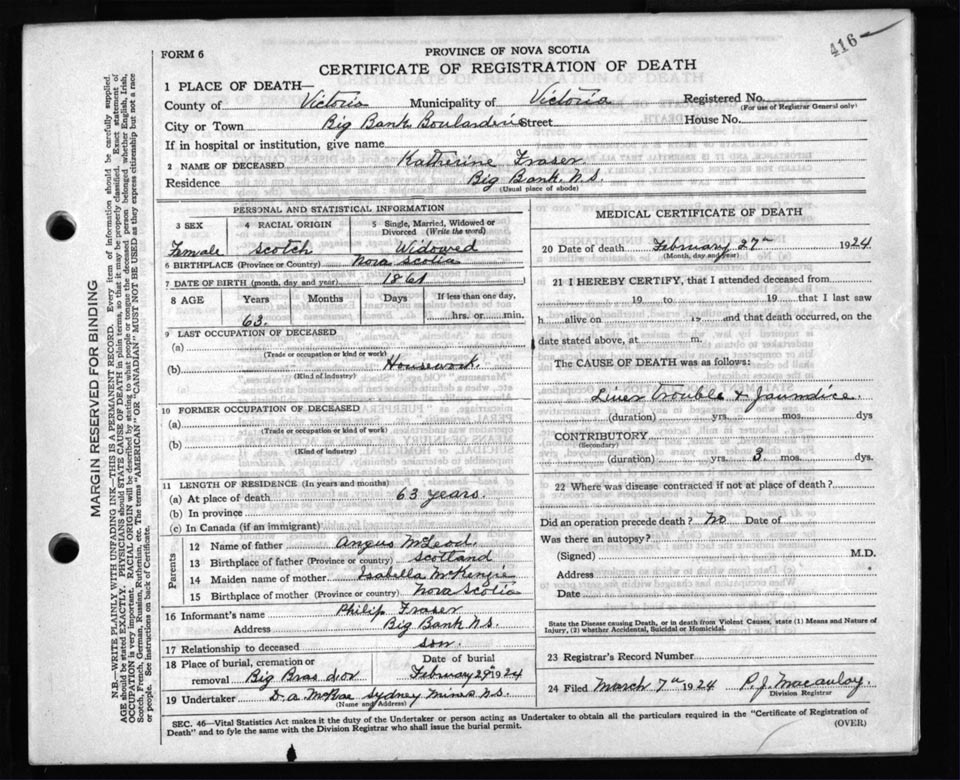 416
FORM 6
PROVINCE OF NOVA SCOTIA
CERTIFICATE OF REGISTRATION OF DEATH
1 PLACE OF DEATH—
County of Victoria Municipality of Victoria Registered No.
(For use of Registrar General only)
City or Town Big Bank Boularderie Street House No.
If in hospital or institution, give name
2 NAME OF DECEASED Katherine Fraser
Residence Big Bank N.S.
(Usual place of abode)
PERSONAL AND STATISTICAL INFORMATION
3 SEX 4 RACIAL ORIGIN 5 Single, Married, Widowed or Divorced (Write the word)
Female Scotch Widowed
6 BIRTHPLACE (Province or Country) Nova Scotia
7 DATE OF BIRTH (month, day, and year) 1861
8 AGE Years Months Days If less than one day,
63. hrs. or min.
9 LAST OCCUPATION OF DECEASED
(a)
(Trade or occupation or kind of work)
(b) Housework
(Kind of industry)
10 FORMER OCCUPATION OF DECEASED
(a)
(Trade or occupation or kind of work)
(b)
(Kind of industry)
11 LENGTH OF RESIDENCE (In years and months)
(a) At place of death 63 years.
(b) In province
(c) In Canada (if an immigrant)
Parents
12 Name of father Angus McLeod.
13 Birthplace of father (Province or country) Scotland
14 Maiden name of mother Isabella McKenzie
15 Birthplace of mother (Province or country) Nova Scotia
16 Informant's name Philip Fraser
Address Big Bank N.S.
17 Relationship to deceased son.
18 Place of burial, cremation or removal Big Bras d'or
Date of burial
February 29th 1924
19 Undertaker D. A. McRae Sydney Mines N.S.
(Name and Address)
MEDICAL CERTIFICATE OF DEATH
20 Date of death February 27th 1924
(Month, day and year)
21 I HEREBY CERTIFY, that I attended deceased from
19 to 19 that I last saw
h alive on 19 and that death occurred, on the
date stated above, at m.
The CAUSE OF DEATH was as follows:
Liver Trouble & Jaundice.
(duration) yrs. mos. dys
CONTRIBUTORY
(Secondary)
(duration) yrs. 3 mos. dys.
22 Where was disease contracted if not at place of death?
Did an operation precede death? No Date of
Was there an autopsy?
(Signed) M.D.
Address
Date
State the Disease causing Death, or in death from Violent Causes, state (1) Means and Nature of
Injury, (2) whether Accidental, Suicidal or Homicidal.
23 Registrar's Record Number
24 Filed March 7th 1924 P. J. Macaulay
Division Registrar
SEC. 46—Vital Statistics Act makes it the duty of the Undertaker or person acting as Undertaker to obtain all the particulars required in the "Certificate of Registration of
Death" and to fyle the same with the Division Registrar who shall issue the burial permit.
(OVER)
MARGIN RESERVED FOR BINDING
N.B.—WRITE PLAINLY WITH UNFADING INK—THIS IS A PERMANENT RECORD. Every item of information should be carefully supplied.
AGE should be stated EXACTLY. PHYSICIANS should STATE CAUSE OF DEATH in plain terms, so that it may be properly classified. Exact statement of
OCCUPATION is very important. RACIAL ORIGIN will be described by stating to what people or tongue the deceased person belonged, whether English, Irish,
Scotch, French, German, Russian, Ruthenian, etc. The terms "AMERICAN" OR "CANADIAN" MUST NOT BE USED as they express citizenship but not a race
or people. See instructions on back of Certificate.